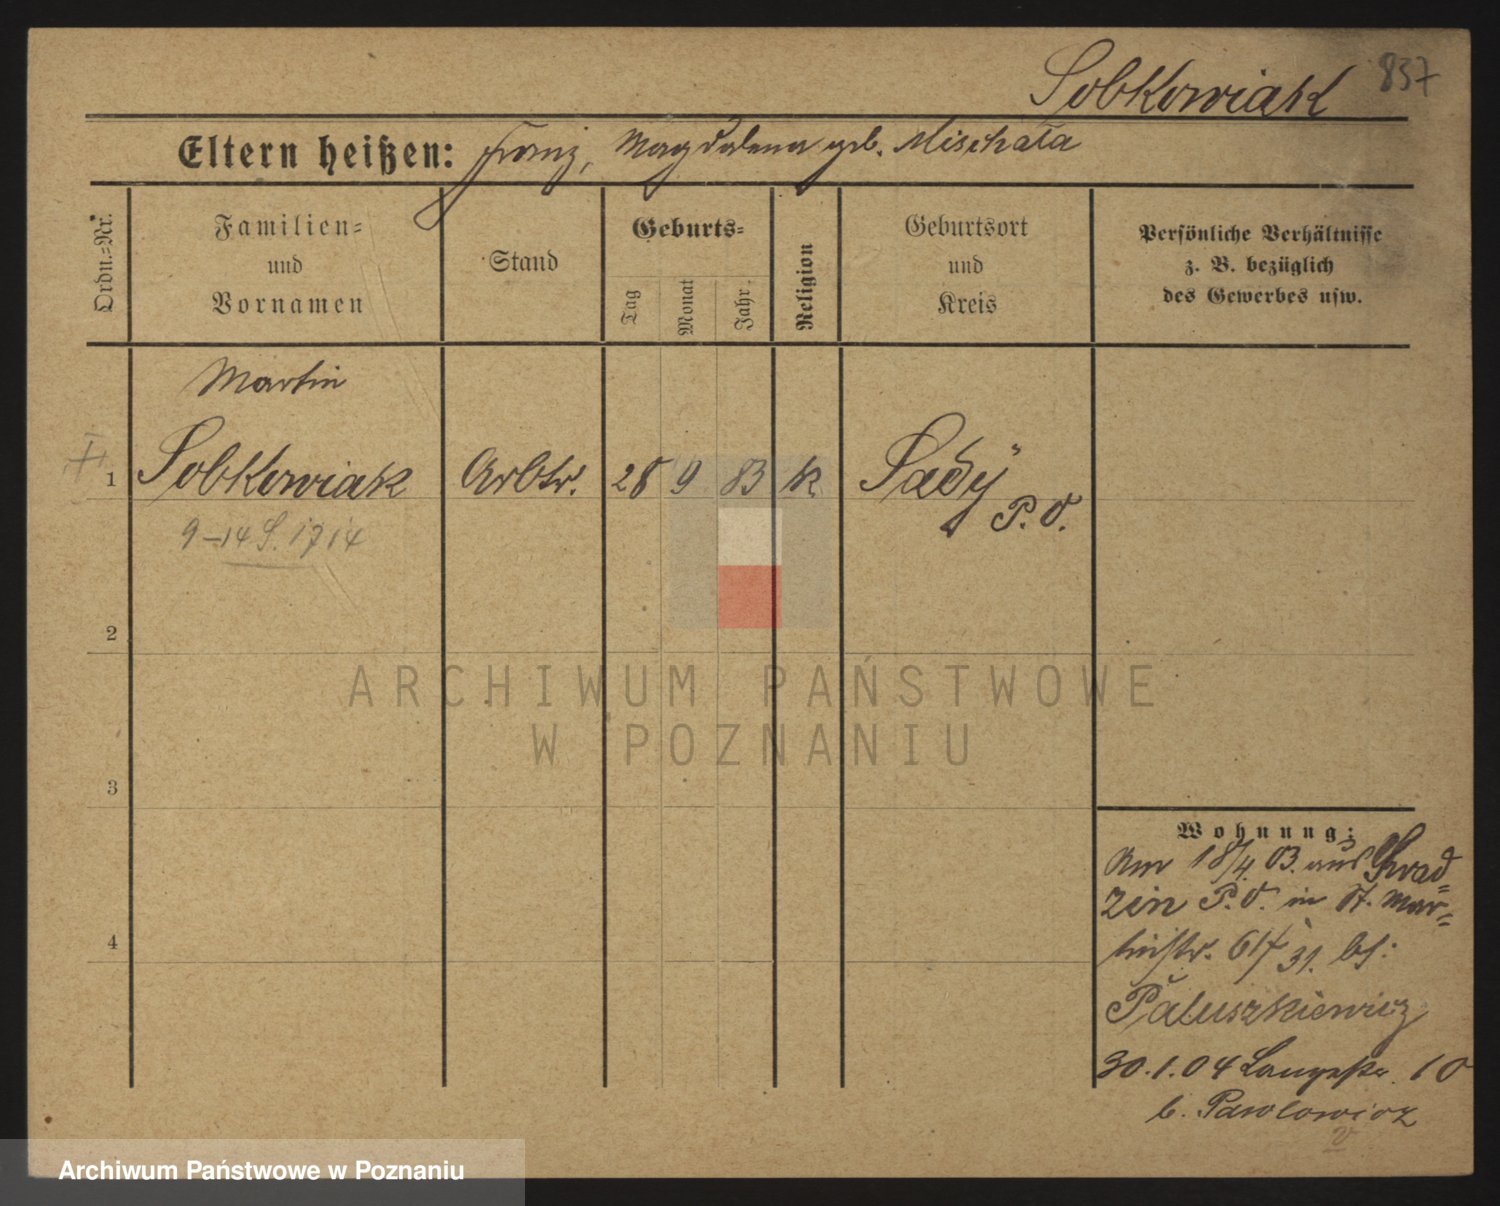 Sobkowiak 837
Eltern heißen: Franz, Magdalena geb. Mischata
Ordn.-Nr.
Familien-
und
Vornamen
Stand
Geburts-
Tag
Monat
Jahr.
Religion
Geburtsort
und
Kreis
Persönliche Verhältnisse
z. B. bezüglich
des Gewerbes usw.
Martin
1 Sobkowiak Arbtr. 28 9 83 k Sady
P. O.
9-14 S. 1714
2
3
4
Wohnung:
Am 18/4. 03. aus Swad=
zin P. O. in St. Mar=
tinstr. 31. bei:
Paluszkiewicz
30.1.04 Langestr. 10
b. Pawlowicz
ARCHIWUM PAŃSTWOWE
W POZNANIU
Archiwum Państwowe w Poznaniu